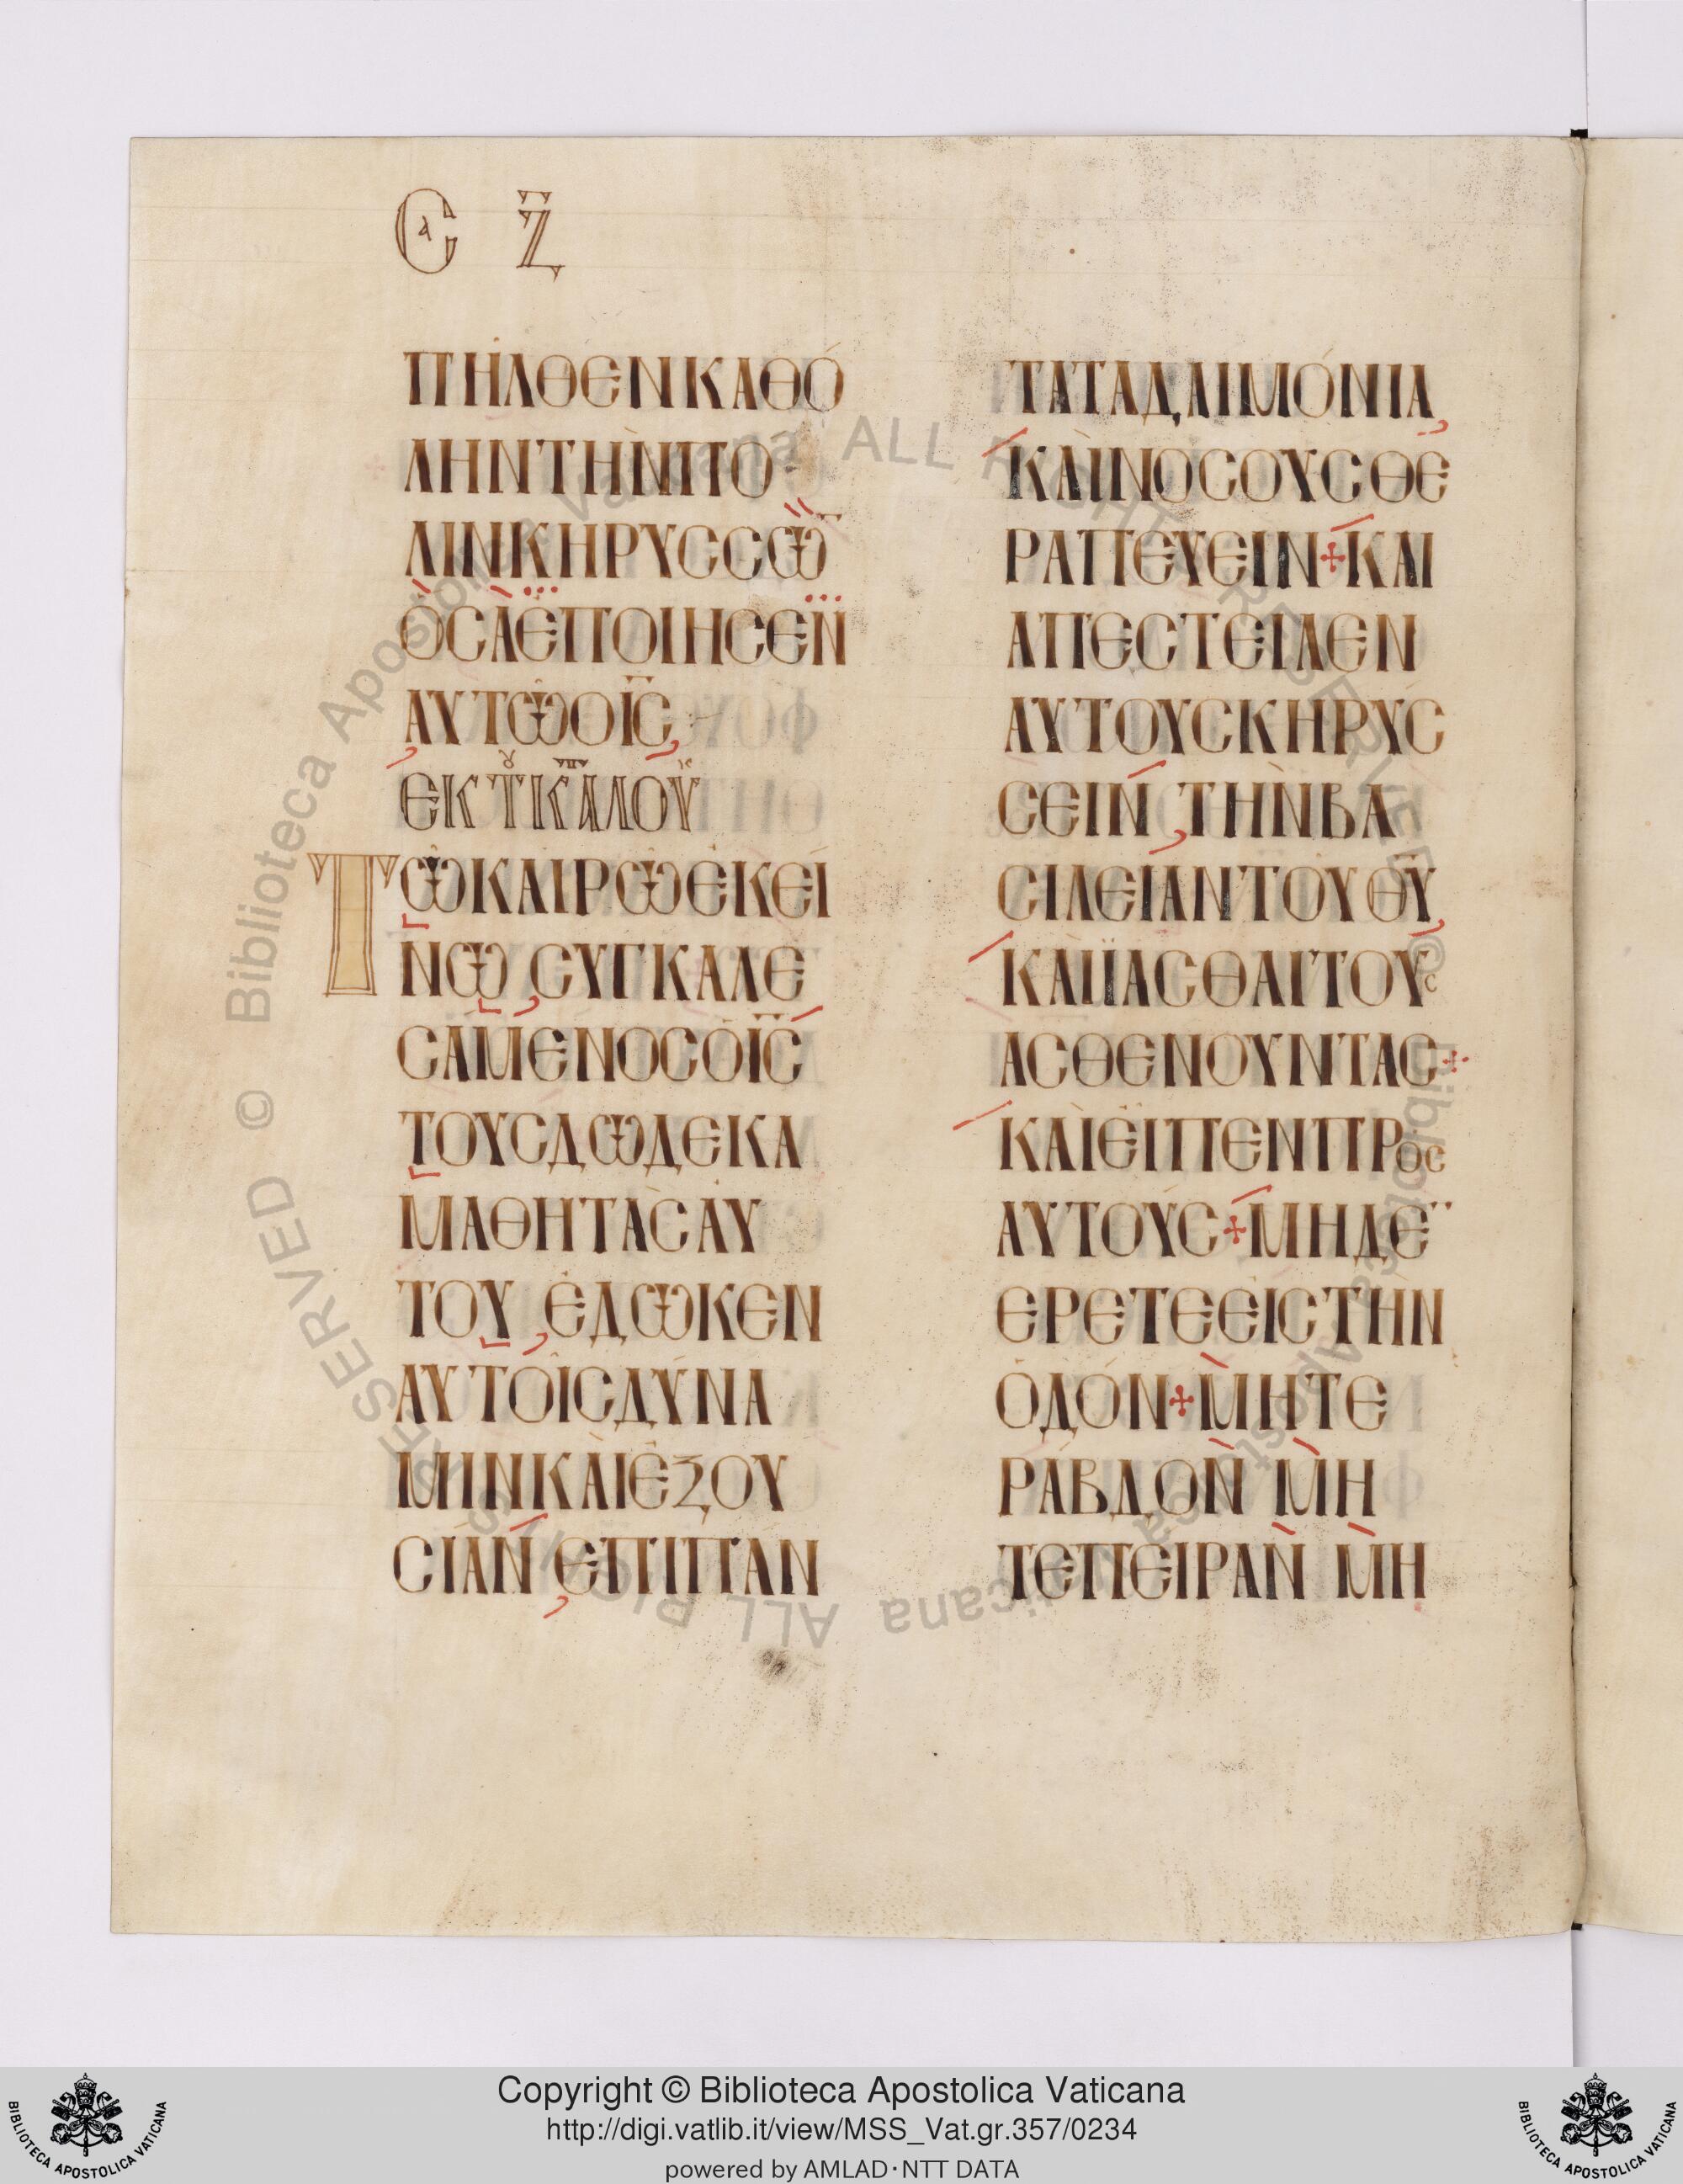 Σα Ζ
ΠΗΛΘΕΝΚΑΘΟ
ΛΗΝΤΗΝΠΟ
ΛΙΝΚΗΡΥССѠ̅
ΟСΑΕΠΟΙΗСΕΝ
ΑΥΤѠΟΙ̅С̅
ΕΚΤΟΥΚΑΤΑΛΟΥΚ
ΤѠΚΑΙΡѠΕΚΕΙ
ΝѠ СΥΓΚΑΛΕ
СΑΜΕΝΟСΟΙ̅С̅
ΤΟΥСΔѠΔΕΚΑ
ΜΑΘΗΤΑСΑΥ
ΤΟΥ ΕΔѠΚΕΝ
ΑΥΤΟΙСΔΥΝΑ
ΜΙΝΚΑΙΕΞΟΥ
СΙΑΝ ΕΠΙΠΑΝ
ΤΑΤΑΔΑΙΜΟΝΙΑ,
ΚΑΙΝΟСΟΥСΘΕ
ΡΑΠΕΥΕΙΝ+ΚΑΙ
ΑΠΕСΤΕΙΛΕΝ
ΑΥΤΟΥСΚΗΡΥС
СΕΙΝ,ΤΗΝΒΑ
СΙΛΕΙΑΝΤΟΥΘ̅Υ̅,
ΚΑΙΙΑСΘΑΙΤΟΥС
ΑСΘΕΝΟΥΝΤΑС+
ΚΑΙΕΙΠΕΝΠΡΟС
ΑΥΤΟΥС+ΜΗΔΕ
ΕΡΕΤΕΕΙСΤΗΝ
ΟΔΟΝ+ΜΗΤΕ
ΡΑΒΔΟΝ ΜΗ
ΤΕΠΕΙΡΑΝ ΜΗ
© Biblioteca Apostolica Vaticana ALL RIGHTS RESERVED © Biblioteca Apostolica Vaticana ALL RIGHTS RESERVED
Copyright © Biblioteca Apostolica Vaticana
http://digi.vatlib.it/view/MSS_Vat.gr.357/0234
powered by AMLAD·NTT DATA
BIBLIOTECA APOSTOLICA VATICANA
BIBLIOTECA APOSTOLICA VATICANA